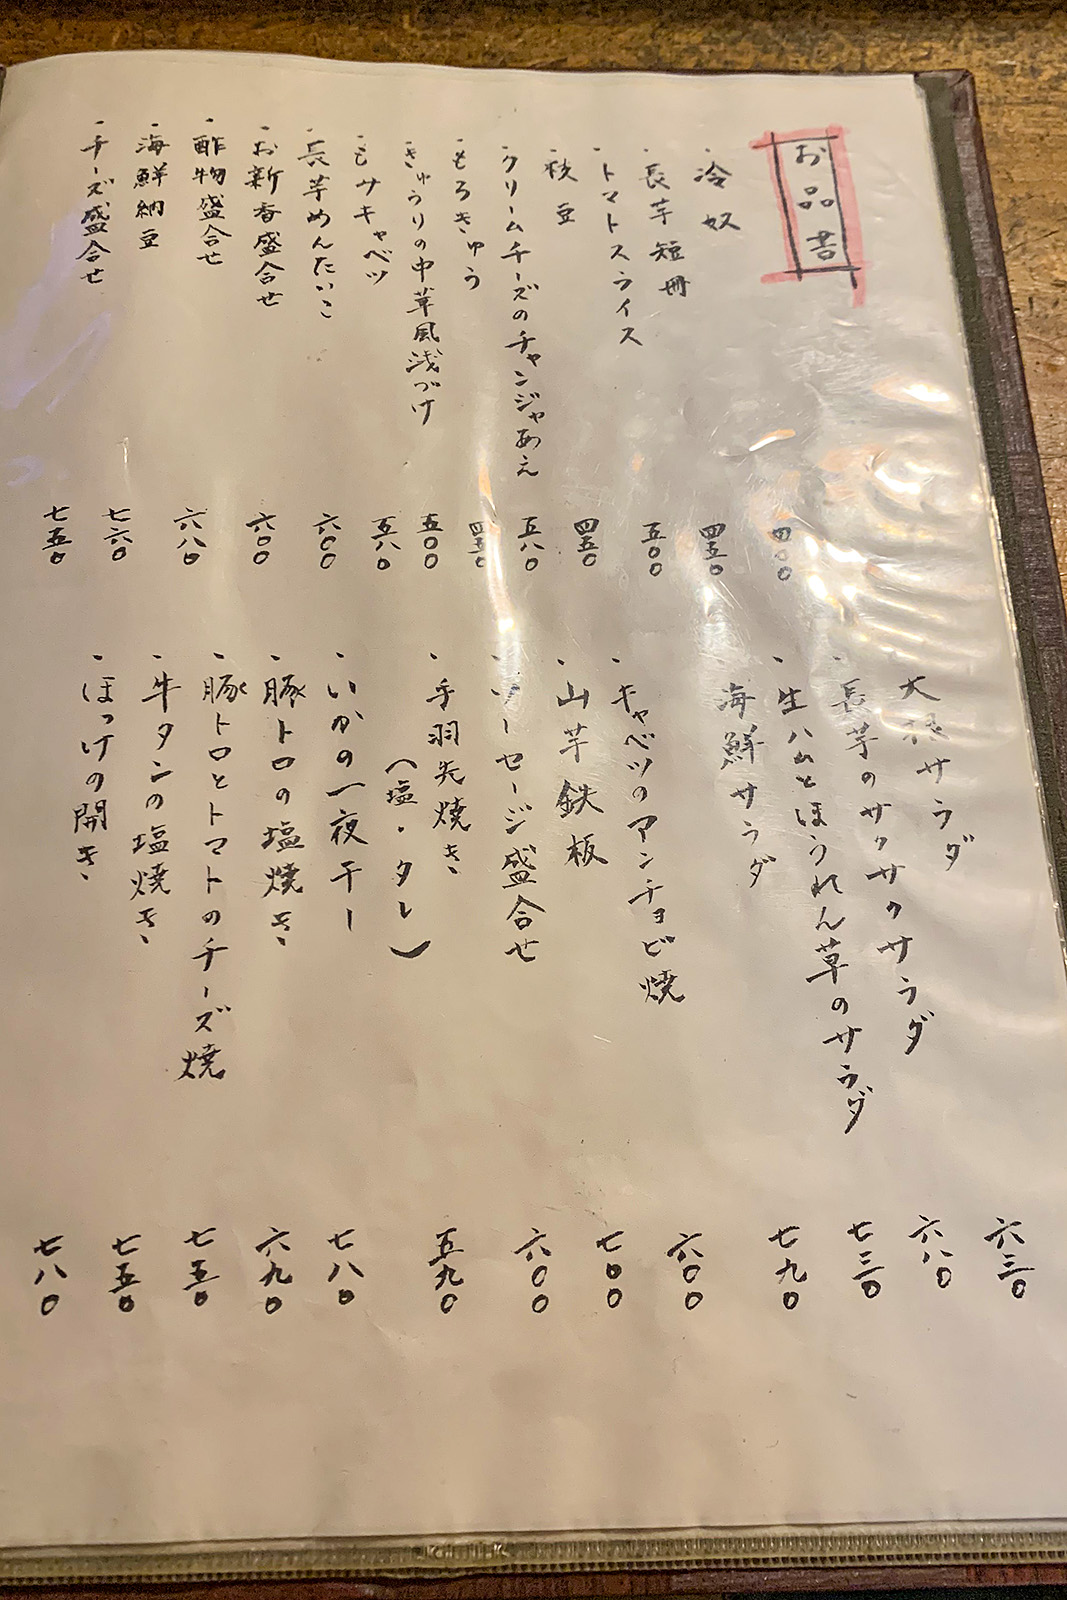 お品書
・冷奴 四〇〇
・長芋短冊 四五〇
・トマトスライス 五〇〇
・枝豆 四五〇
・クリームチーズのチャンジャあえ 五八〇
・もろきゅう 四五〇
・きゅうりの中華風浅づけ 五〇〇
・キャベツ 五八〇
・長芋めんたいこ 六〇〇
・お新香盛合せ 六〇〇
・酢物盛合せ 六八〇
・海鮮納豆 七六〇
・チーズ盛合せ 七五〇
大根サラダ 六三〇
・長芋のサクサクサラダ 六八〇
・生ハムとほうれん草のサラダ 七三〇
海鮮サラダ 七九〇
・キャベツのアンチョビ焼 六〇〇
・山芋鉄板 七〇〇
・ソーセージ盛合せ 六〇〇
・手羽先焼き 五九〇
(塩・タレ)
・いかの一夜干し 七八〇
・豚トロの塩焼き 六九〇
・豚トロとトマトのチーズ焼 七五〇
・牛タンの塩焼き 七五〇
・ほっけの開き 七八〇